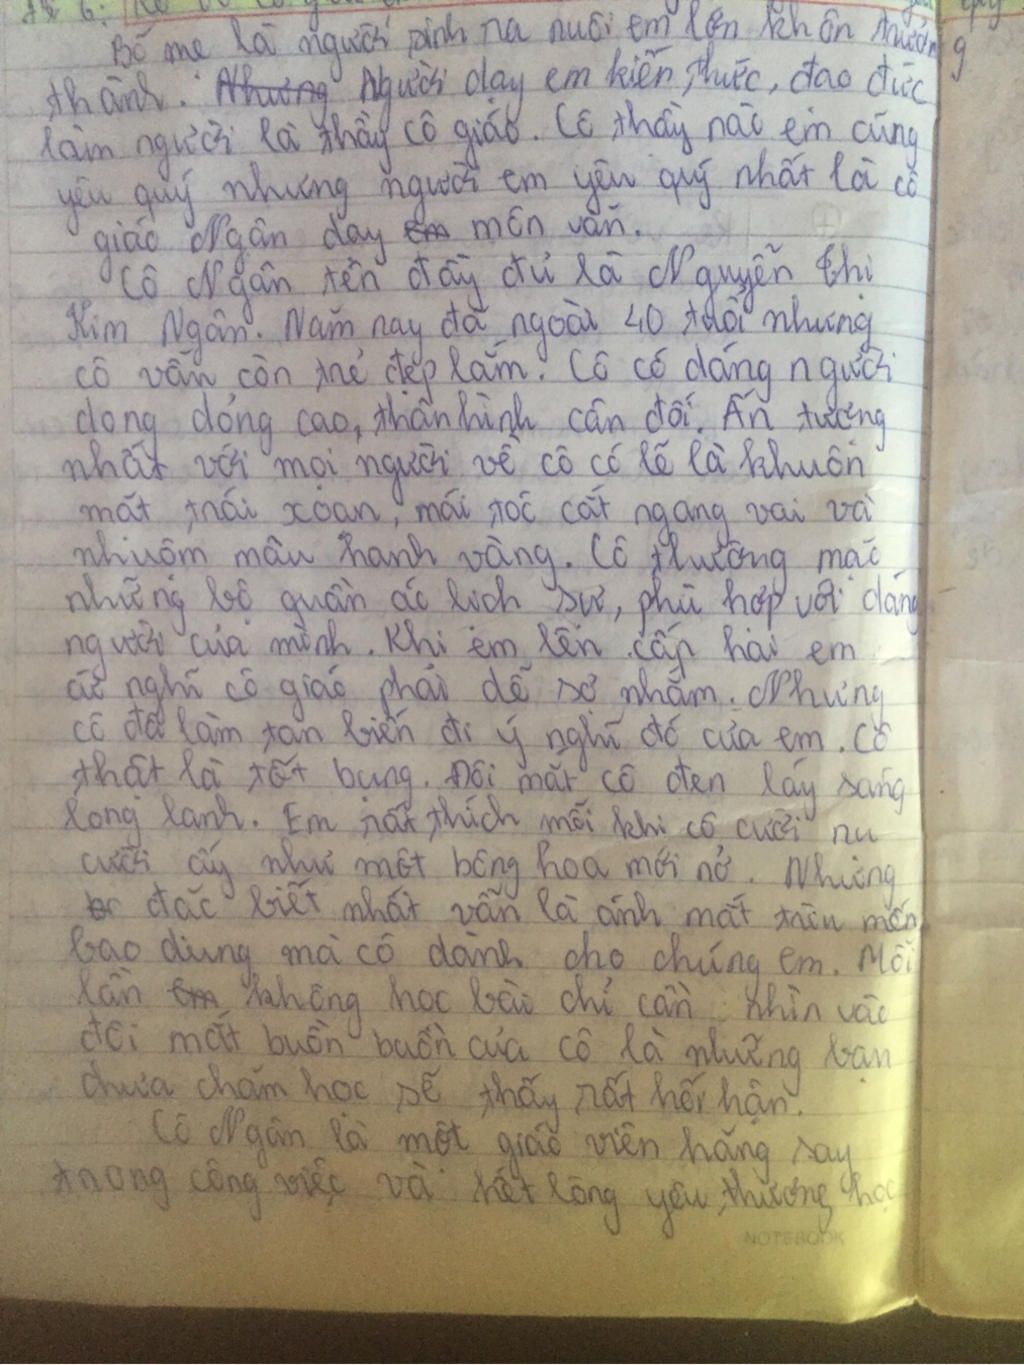 Bố mẹ là người sinh ra nuôi em lớn khôn trưởng
thành. Nhưng Người dạy em kiến thức, đạo đức
làm người là thầy cô giáo. Cô thầy nào em cũng
yêu quý nhưng người em yêu quý nhất là cô
giáo Ngân dạy em môn văn.
Cô Ngân tên đầy đủ là Nguyễn Thị
Kim Ngân. Năm nay đã ngoài 40 tuổi nhưng
cô vẫn còn trẻ đẹp lắm. Cô có dáng người
dong dỏng cao, thân hình cân đối. Ấn tượng
nhất với mọi người về cô có lẽ là khuôn
mặt trái xoan, mái tóc cắt ngang vai và
nhuộm màu hanh vàng. Cô thường mặc
những bộ quần áo lịch sự, phù hợp với dáng
người của mình. Khi em lên cấp hai em
cứ nghĩ cô giáo phải dễ sợ nhắm. Nhưng
cô đã làm tan biến đi ý nghĩ đó của em. Cô
thật là tốt bụng. Đôi mắt cô đen láy sáng
long lanh. Em rất thích mỗi khi cô cười nụ
cười ấy như một bông hoa mới nở. Nhưng
đặc biệt nhất vẫn là ánh mắt trìu mến
bao dung mà cô dành cho chúng em. Mỗi
lần em không học bài chỉ cần nhìn vào
đôi mắt buồn buồn của cô là những bạn
chưa chăm học sẽ thấy rất hối hận.
Cô Ngân là một giáo viên hăng say
trong công việc và hết lòng yêu thương học
NOTEBOOK